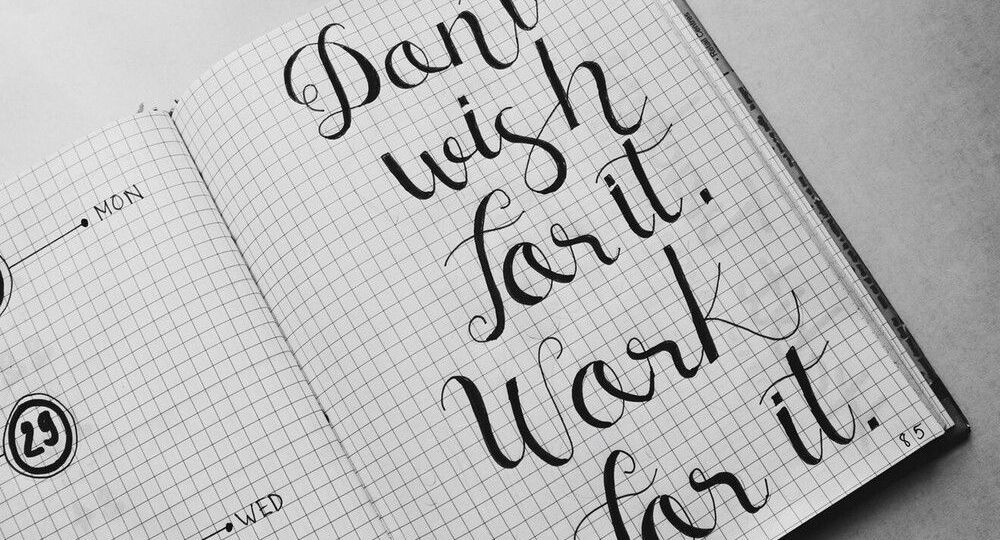 MON
29
WED
Don't
wish
for it.
Work
for it.
85